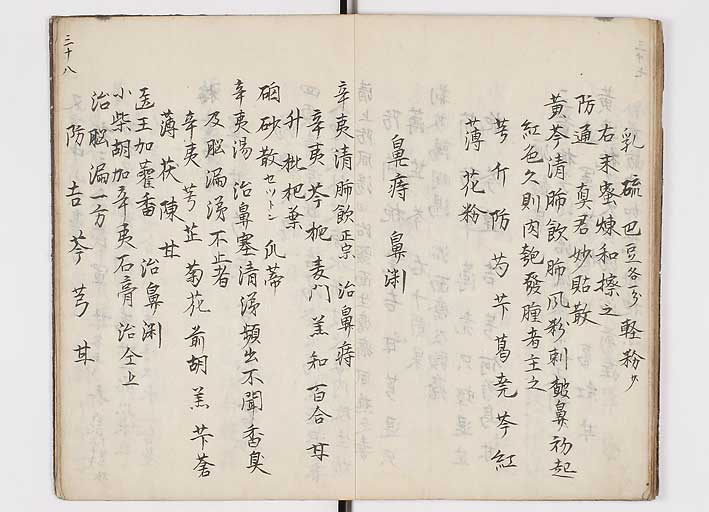 三十七
乳 硫 巴豆各一分 軽粉少
右末蜜煉和擦之
防通 真君妙貼散
黄芩清肺飲 肺風粉刺皶鼻初起
紅色久則肉皰發腫者主之
芎 介 防 芍 芐 葛 尭 芩 紅
薄 花粉
鼻痔 鼻渕
辛夷清肺飲 正宗 治鼻痔
辛夷 芩 梔 麦門 羔 知 百合 甘
升 枇杷葉
硇砂散 セツトン 瓜蒂
辛夷湯 治鼻塞清涕頻出不聞香臭
及脳漏涕不止者
辛夷 芎 芷 菊花 前胡 羔 芐 蒼
薄 茯 陳 甘
医王加藿香 治鼻渕
小柴胡加辛夷石膏 治仝上
治脳漏一方
防 吉 芩 芎 甘
三十八